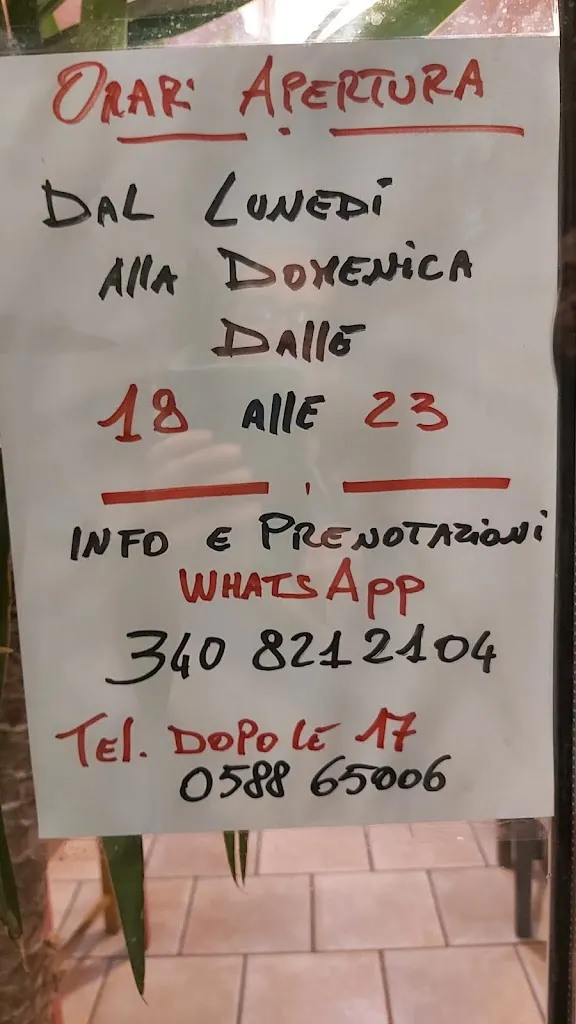 ORARI APERTURA
DAL LUNEDÌ
ALLA DOMENICA
DALLE
18 ALLE 23
INFO E PRENOTAZIONI
WHATSAPP
340 8212104
TEL. DOPO LE 17
0588 65006